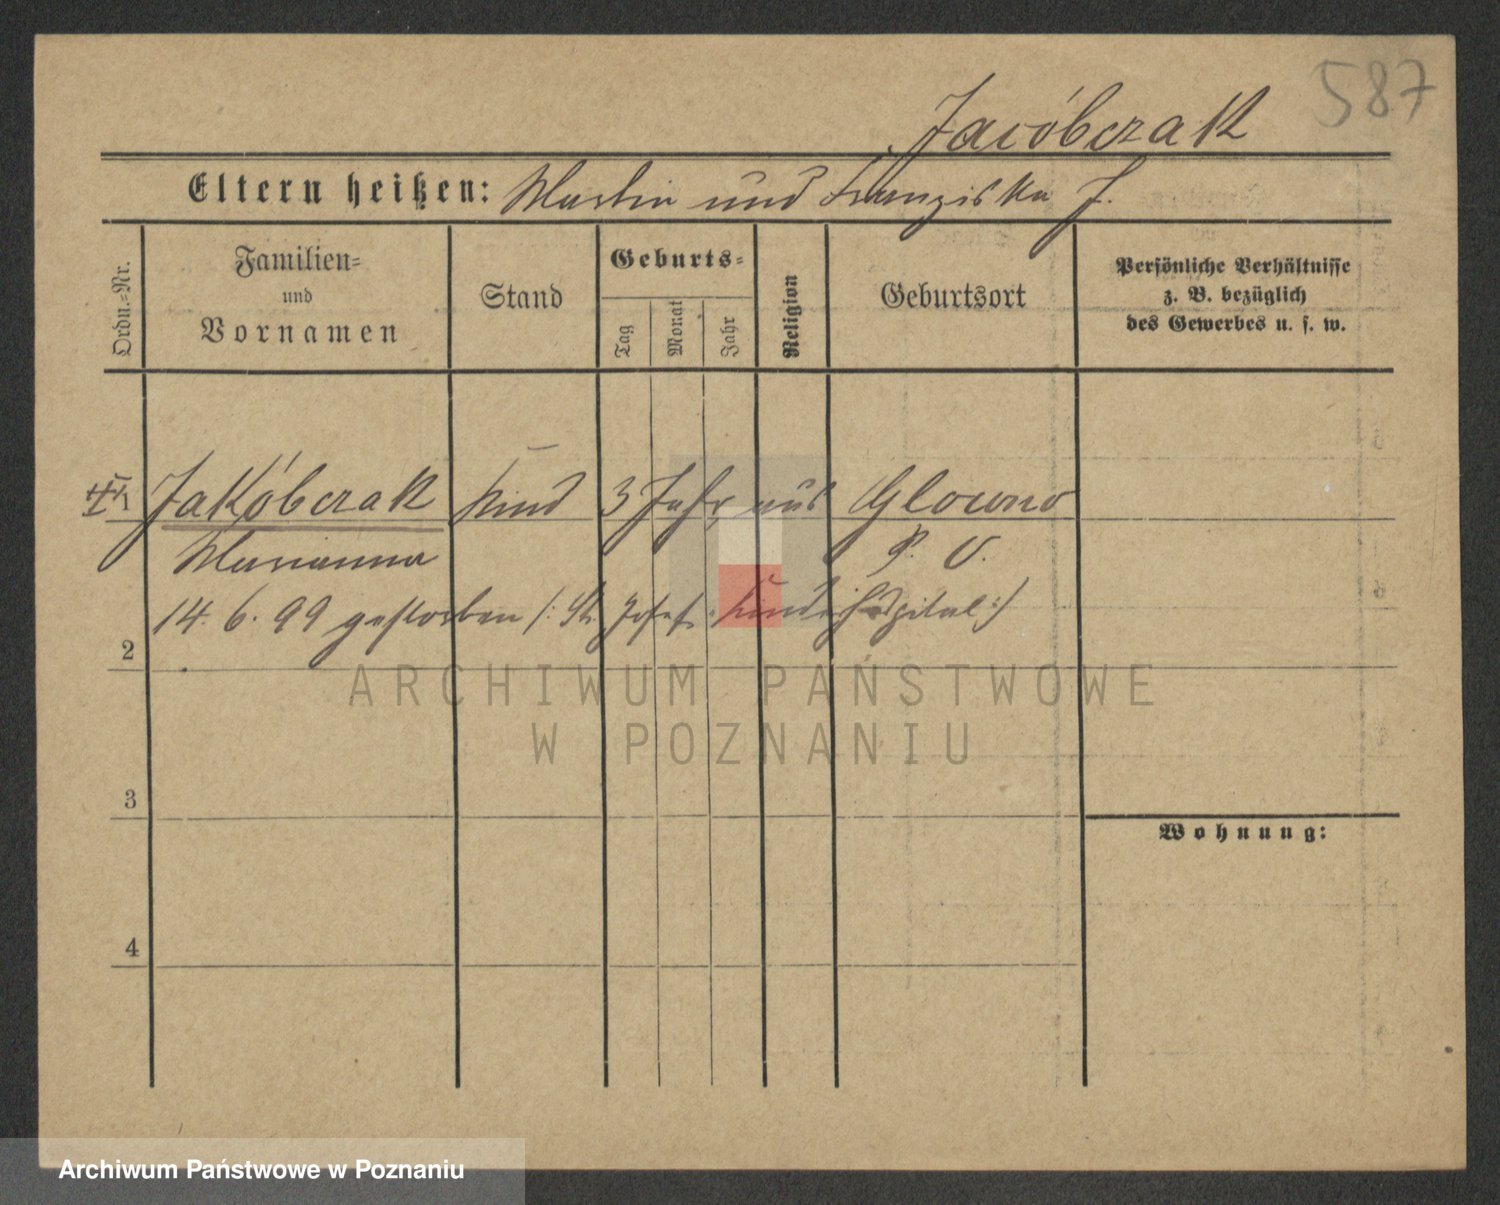 587
Jacóbczak
Eltern heißen: Martin und Franziska J.
Ordn.=Nr.
Familien=
und
Vornamen
Stand
Geburts=
Tag
Monat
Jahr
Religion
Geburtsort
Persönliche Verhältnisse
z. B. bezüglich
des Gewerbes u. s. w.
Jakóbczak Kind 3 Jahr aus Glowno
Marianna P. O.
14. 6. 99 gestorben /: St. Josef Kinderhospital :/
2
3
4
Wohnung:
ARCHIWUM PAŃSTWOWE
W POZNANIU
Archiwum Państwowe w Poznaniu